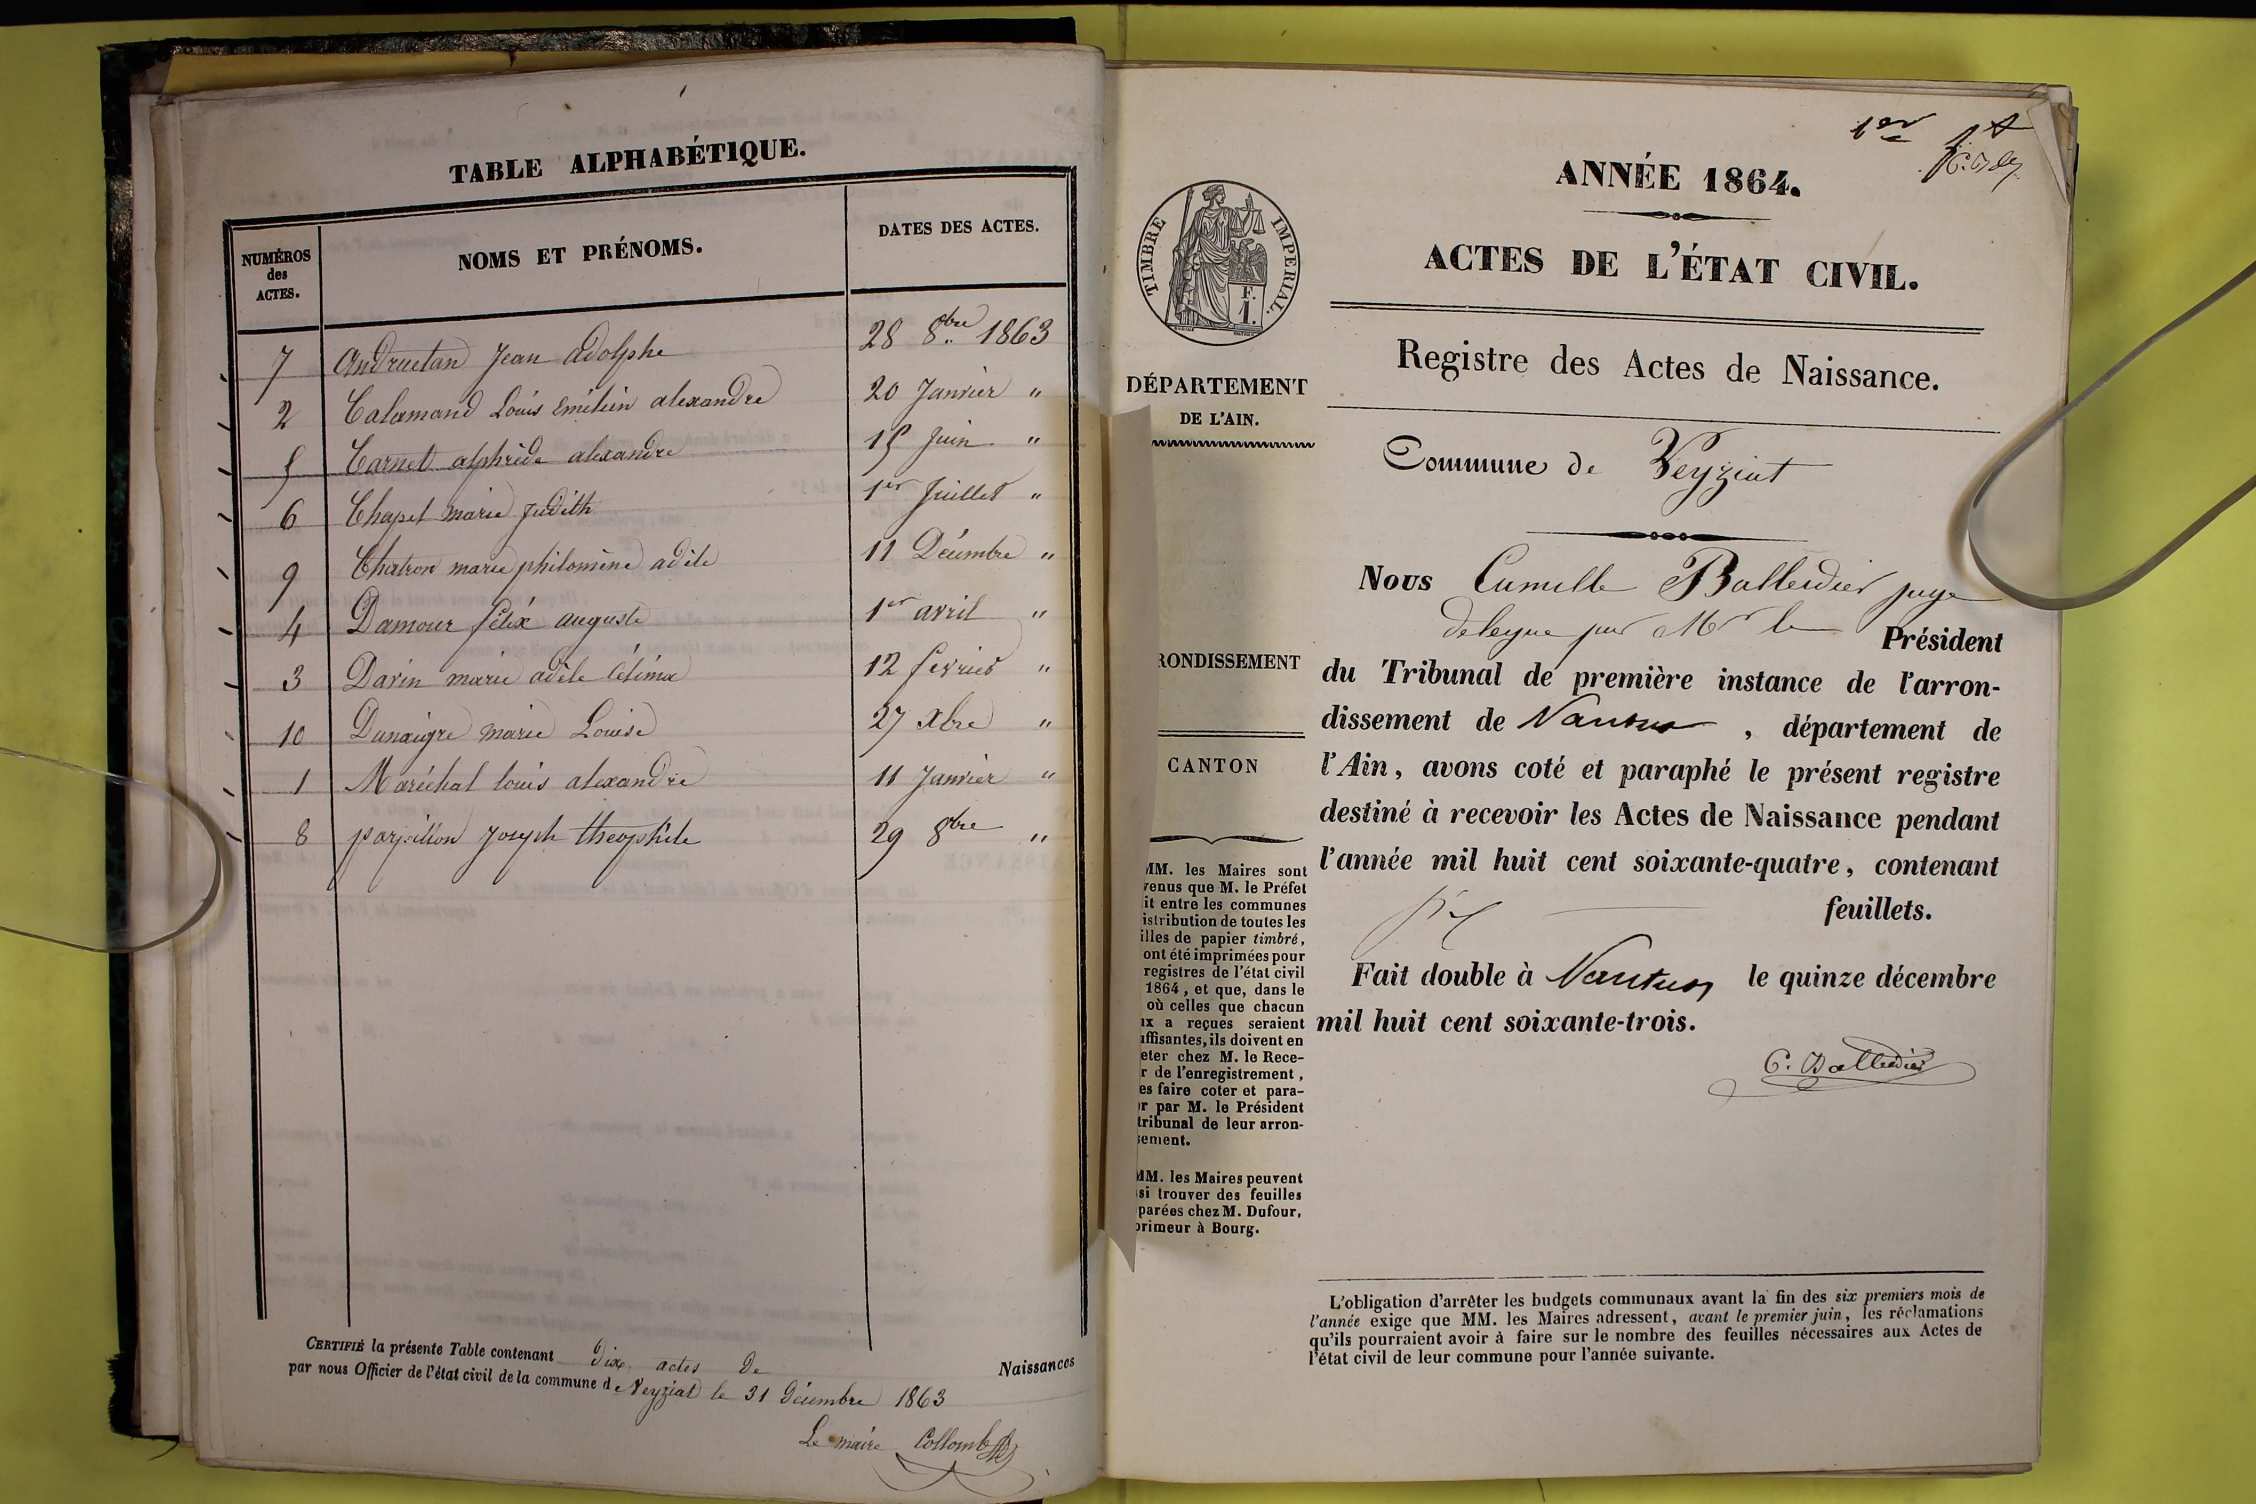 TABLE ALPHABÉTIQUE.
NUMÉROS
des
ACTES.
NOMS ET PRÉNOMS.
DATES DES ACTES.
7 Andruetan Jean adolphe 28 8bre 1863
2 Calamand Louis Emilien alexandre 20 Janvier "
5 Carnet alphride alexandre 15 Juin "
6 Chapel marie Judith 1er Juillet "
9 Chatron marie philomène adèle 11 Décembre "
4 Damour félix auguste 1er avril "
3 Darin marie adèle Célima 12 fevrier "
10 Dunaigre marie Louise 27 Xbre "
1 Maréchal louis alexandre 11 Janvier "
8 parpillon Joseph théophile 29 8bre "
CERTIFIÉ la présente Table contenant Dix actes de Naissances
par nous Officier de l'état civil de la commune de Veyziat le 31 Décembre 1863
Le maire Collomb
1er
ANNÉE 1864.
ACTES DE L'ÉTAT CIVIL.
TIMBRE IMPERIAL.
F.
1.
Registre des Actes de Naissance.
DÉPARTEMENT
DE L'AIN.
Commune de Veyziat
Nous Camille Balleidier juge
delegue par Mr le Président
du Tribunal de première instance de l'arron-
dissement de Nantua, département de
l'Ain, avons coté et paraphé le présent registre
destiné à recevoir les Actes de Naissance pendant
l'année mil huit cent soixante-quatre, contenant
feuillets.
Fait double à Nantua le quinze décembre
mil huit cent soixante-trois.
C. Balleidier
RONDISSEMENT
CANTON
MM. les Maires sont
venus que M. le Préfet
it entre les communes
istribution de toutes les
illes de papier timbré,
ont été imprimées pour
registres de l'état civil
1864, et que, dans le
où celles que chacun
ux a reçues seraient
uffisantes, ils doivent en
eter chez M. le Rece-
r de l'enregistrement,
es faire coter et para-
r par M. le Président
tribunal de leur arron-
sement.
MM. les Maires peuvent
si trouver des feuilles
parées chez M. Dufour,
primeur à Bourg.
L'obligation d'arrêter les budgets communaux avant la fin des six premiers mois de
l'année exige que MM. les Maires adressent, avant le premier juin, les réclamations
qu'ils pourraient avoir à faire sur le nombre des feuilles nécessaires aux Actes de
l'état civil de leur commune pour l'année suivante.